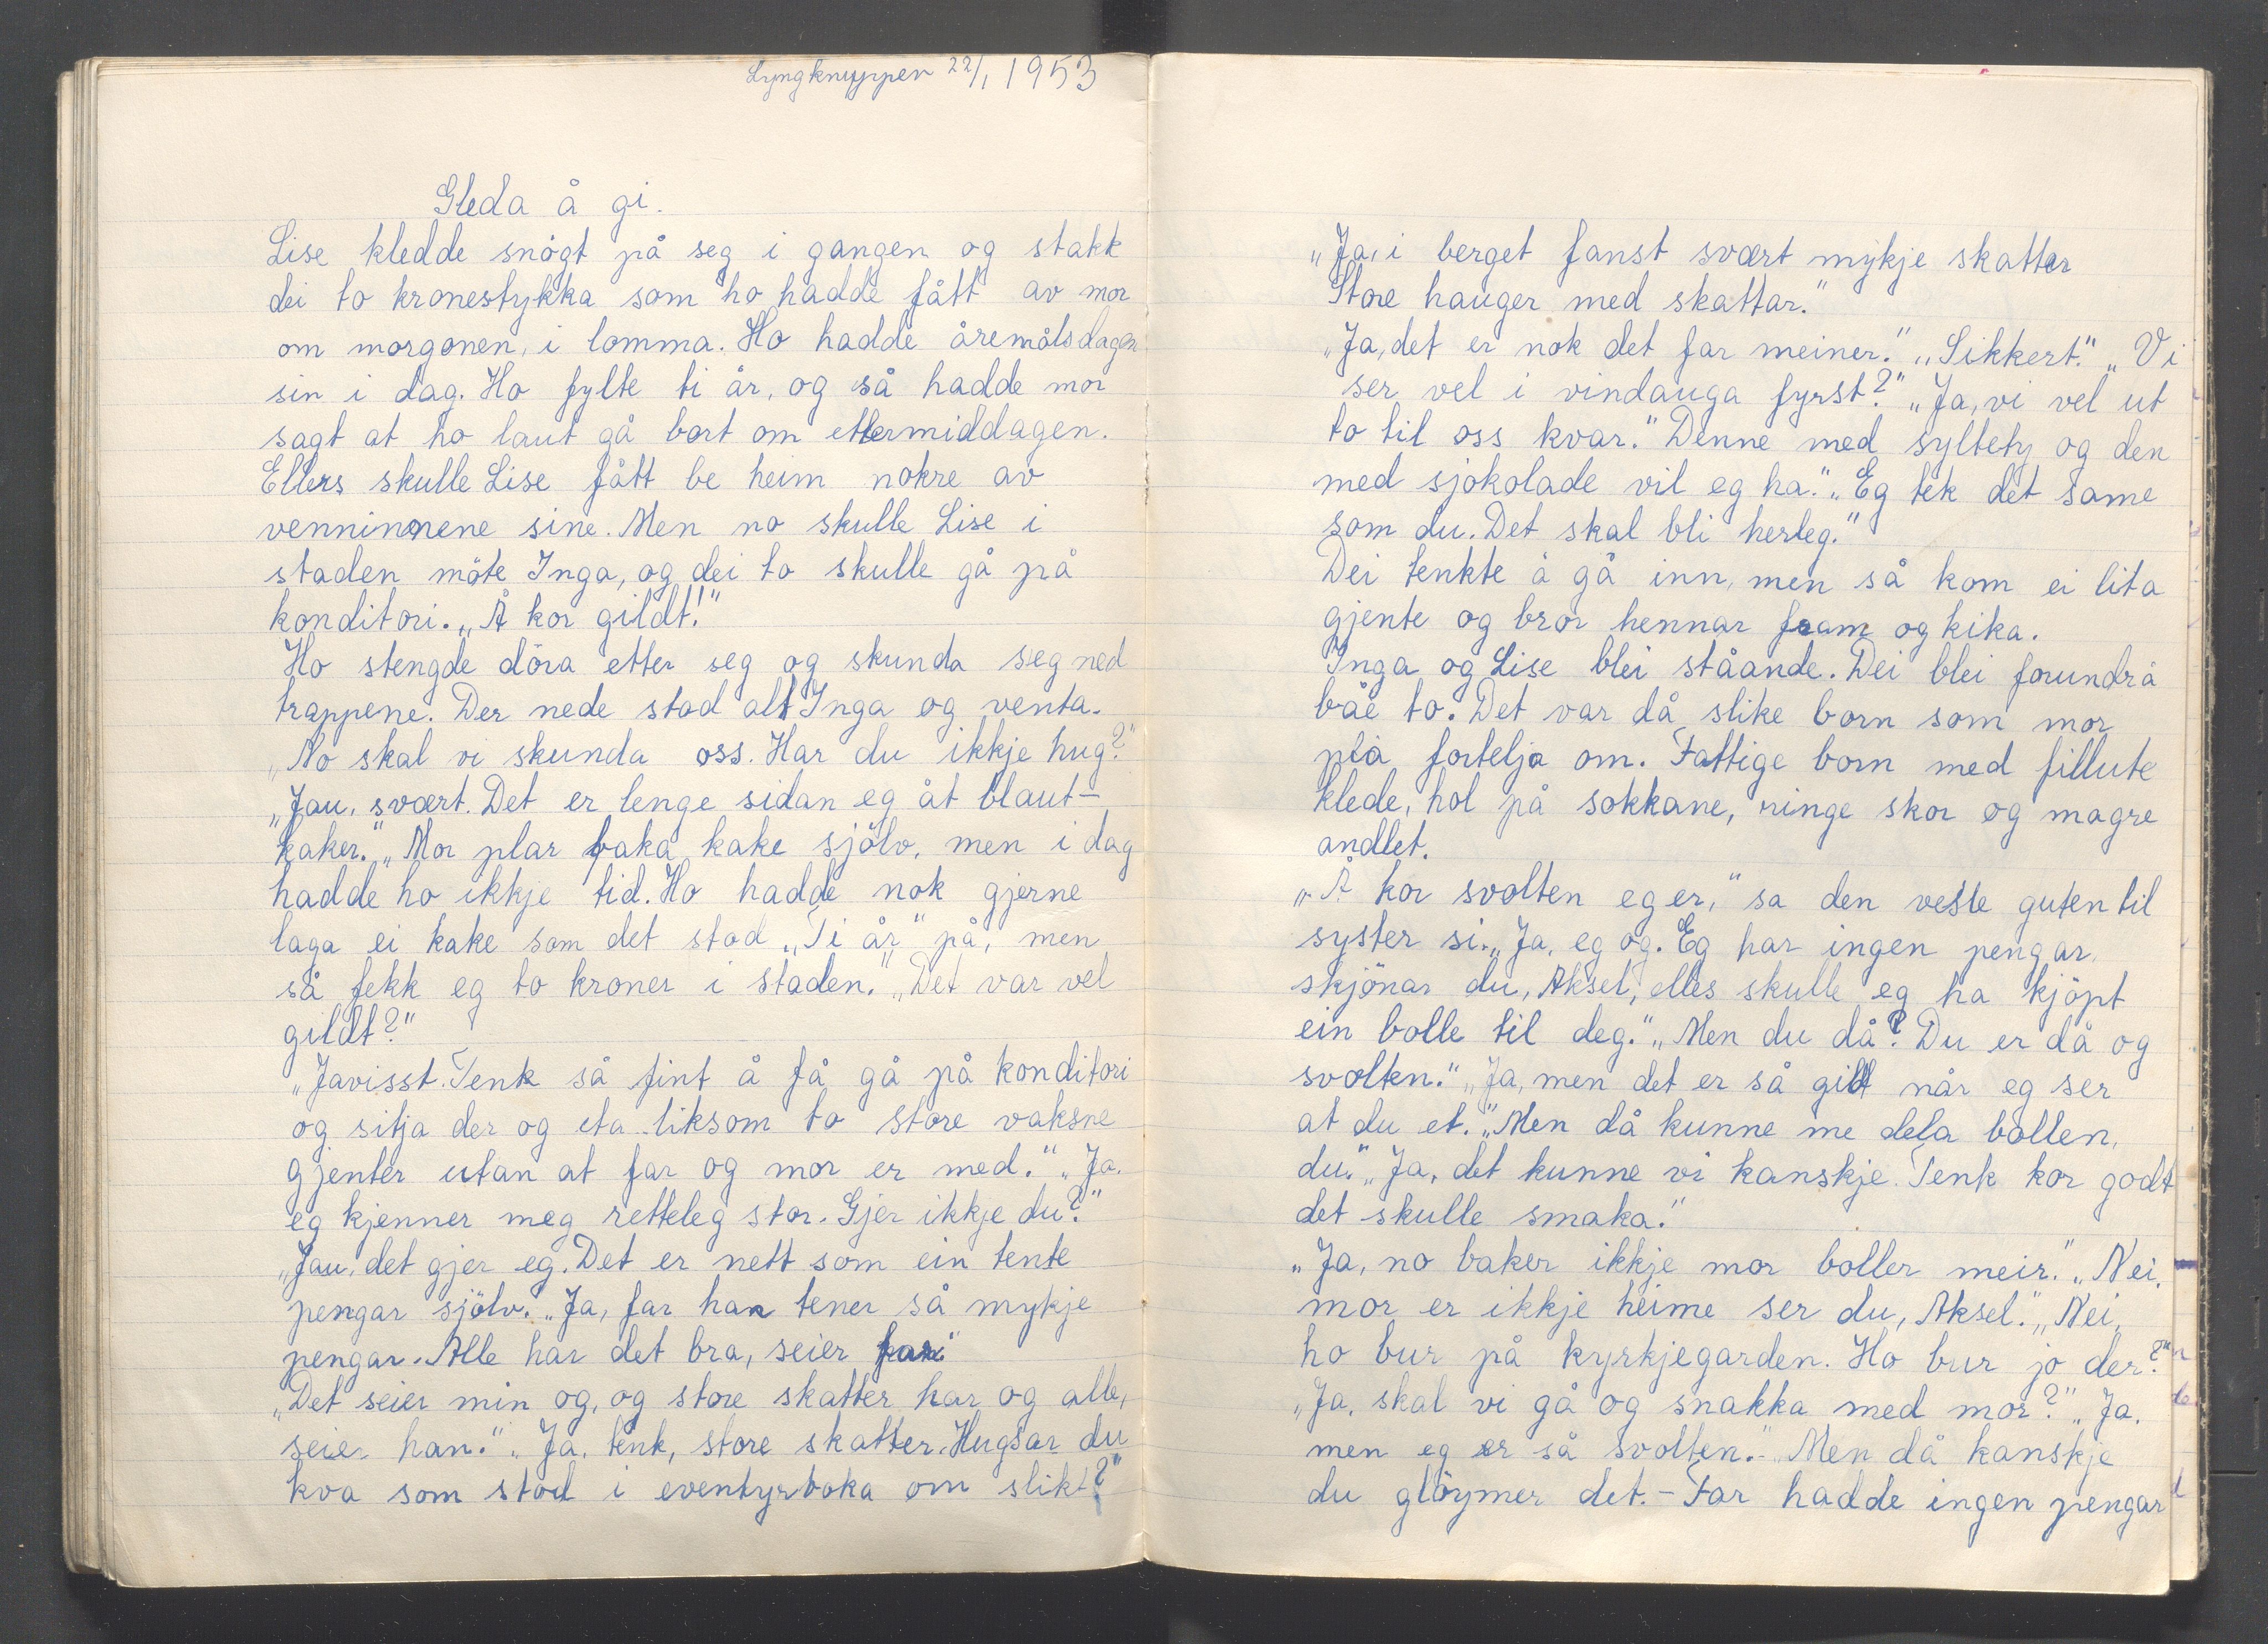 Lyngknuppen 22/1 1953
Gleda å gi.
Lise kledde snögt på seg i gangen og stakk
dei to kronestykka som ho hadde fått av mor
om morgonen, i lomma. Ho hadde åremålsdagen
sin i dag. Ho fylte ti år, og så hadde mor
sagt at ho laut gå bort om ettermiddagen.
Ellers skulle Lise fått be heim nokre av
venninnene sine. Men no skulle Lise i
staden möte Inga, og dei to skulle gå på
konditori. „Å kor gildt!"
Ho stengde döra etter seg og skunda seg ned
trappene. Der nede stod alt Inga og venta.
„No skal vi skunda oss. Har du ikkje hug?"
„Jau, svært. Det er lenge sidan eg åt blaut-
kaker." „Mor plar baka kake sjölv, men i dag
hadde ho ikkje tid. Ho hadde nok gjerne
laga ei kake som det stod „Ti år" på, men
så fekk eg to kroner i staden." „Det var vel
gildt?"
„Javisst. Tenk så fint å få gå på konditori
og sitja der og eta liksom to store vaksne
gjenter utan at far og mor er med." „Ja,
eg kjenner meg retteleg stor. Gjer ikkje du?"
„Jau, det gjer eg. Det er nett som ein tente
pengar sjölv. „Ja, far han tener så mykje
pengar. Alle har det bra, seier far."
„Det seier min og, og store skatter har og alle,
seier han." „Ja, tenk, store skatter. Hugsar du
kva som stod i eventyrboka om slikt?"
„Ja, i berget fanst svært mykje skatter
Store hauger med skattar."
„Ja, det er nok det far meiner." „Sikkert." „Vi
ser vel i vindauga fyrst?" „Ja, vi vel ut
to til oss kvar." Denne med syltety og den
med sjokolade vil eg ha." „Eg tek det same
som du. Det skal bli herleg."
Dei tenkte å gå inn, men så kom ei lita
gjente og bror hennar fram og kika.
Inga og Lise blei ståande. Dei blei forundra
båe to. Det var då slike born som mor
pla fortelja om. Fattige born med fillute
klede, hol på sokkane, ringe skor og magre
andlet.
„Å kor svolten eg er," sa den vesle guten til
syster si. „Ja, eg og. Eg har ingen pengar,
skjönar du, Aksel, elles skulle eg ha kjöpt
ein bolle til deg." „Men du då? Du er då og
svolten." „Ja, men det er så gildt når eg ser
at du et." „Men då kunne me dela bollen,
du." „Ja, det kunne vi kanskje. Tenk kor godt
det skulle smaka."
„Ja, no baker ikkje mor boller meir." „Nei,
mor er ikkje heime ser du, Aksel." „Nei,
ho bur på kyrkjegarden. Ho bur jo der?"
„Ja, skal vi gå og snakka med mor?" „Ja,
men eg er så svolten." Men då kanskje
du glöymer det. - Far hadde ingen pengar